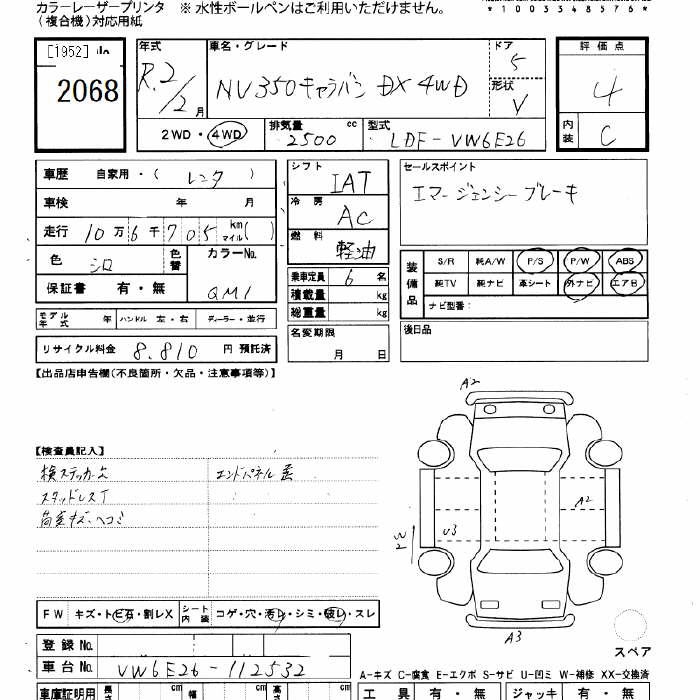 カラーレーザープリンタ ※ 水性ボールペンはご利用いただけません。
(複合機)対応用紙
*1003348576*
[1952]
2068
年式 R.2/2月
車名・グレード NV350キャラバン DX 4WD
ドア 5
形状 V
2WD・4WD
排気量 2500 cc
型式 LDF-VW6E26
評価点 4
内装 C
車歴 自家用・( レンタ )
車検 年 月
走行 10万6千705km マイル( )
色 シロ 色替
カラーNo. QM1
保証書 有・無
シフト IAT
冷房 AC
燃料 軽油
乗車定員 6 名
積載量 kg
総重量 kg
セールスポイント
エマージェンシーブレーキ
装備品
S/R 純A/W P/S P/W ABS
純TV 純ナビ 革シート 外ナビ エアB
ナビ型番:
モデル年式 年 ハンドル 左・右 ディーラー・並行
名変期限 月 日
後日品
リサイクル料金 8,810 円 預託済
【出品店申告欄(不良箇所・欠品・注意事項等)】
A2
【検査員記入】
検ステッカー欠 エンドパネル歪
スタッドレスT
荷室キズ、ヘコミ
A2
U3
W2
A3
スペア
FW キズ・トビ石・割レX シート内装 コゲ・穴・汚レ・シミ・破レ・スレ
登録No.
車台No. VW6E26-112532
A-キズ C-腐食 E-エクボ S-サビ U-凹ミ W-補修 XX-交換済
車庫証明用 長さ cm 幅 cm 高さ cm
工具 有・無 ジャッキ 有・無